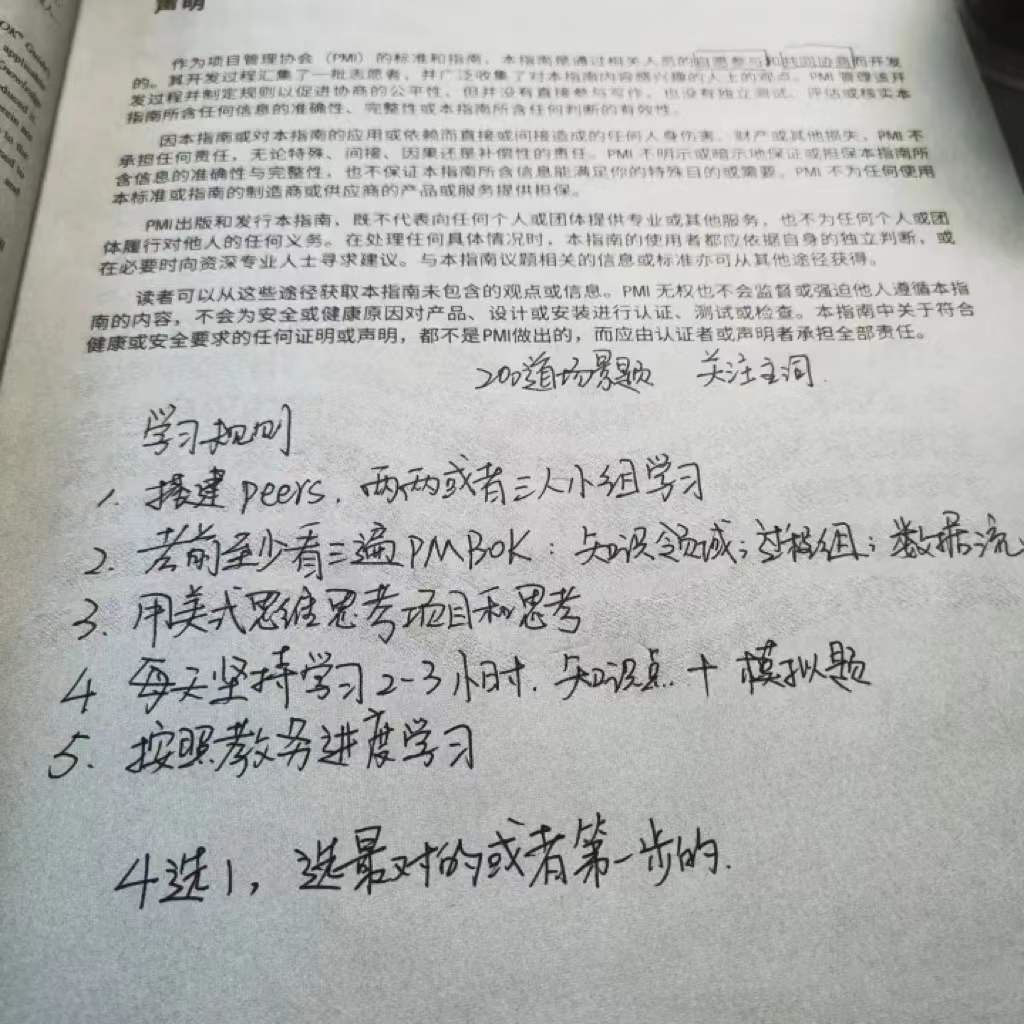 声明
作为项目管理协会（PMI）的标准和指南，本指南是通过相关人员的自愿参与和共同协商而开发
的。其开发过程汇集了一批志愿者，并广泛收集了对本指南内容感兴趣的人士的观点。PMI 管理该开
发过程并制定规则以促进协商的公平性，但并没有直接参与写作，也没有独立测试、评估或核实本
指南所含任何信息的准确性、完整性或本指南所含任何判断的有效性。
因本指南或对本指南的应用或依赖而直接或间接造成的任何人身伤害、财产或其他损失，PMI 不
承担任何责任，无论特殊、间接、因果还是补偿性的责任。PMI 不明示或暗示地保证或担保本指南所
含信息的准确性与完整性，也不保证本指南所含信息能满足你的特殊目的或需要。PMI 不为任何使用
本标准或指南的制造商或供应商的产品或服务提供担保。
PMI出版和发行本指南，既不代表向任何个人或团体提供专业或其他服务，也不为任何个人或团
体履行对他人的任何义务。在处理任何具体情况时，本指南的使用者都应依据自身的独立判断，或
在必要时向资深专业人士寻求建议。与本指南议题相关的信息或标准亦可从其他途径获得。
读者可以从这些途径获取本指南未包含的观点或信息。PMI 无权也不会监督或强迫他人遵循本指
南的内容，不会为安全或健康原因对产品、设计或安装进行认证、测试或检查。本指南中关于符合
健康或安全要求的任何证明或声明，都不是PMI做出的，而应由认证者或声明者承担全部责任。
200道场景题 关注主词.
学习规则
1. 搭建 peers. 两两或者三人小组学习
2. 考前至少看三遍PMBOK：知识领域；过程组；数据流
3. 用美式思维思考项目和思考
4 每天坚持学习2-3小时. 知识点 + 模拟题
5. 按照教务进度学习
4选1，选最对的或者第一步的.